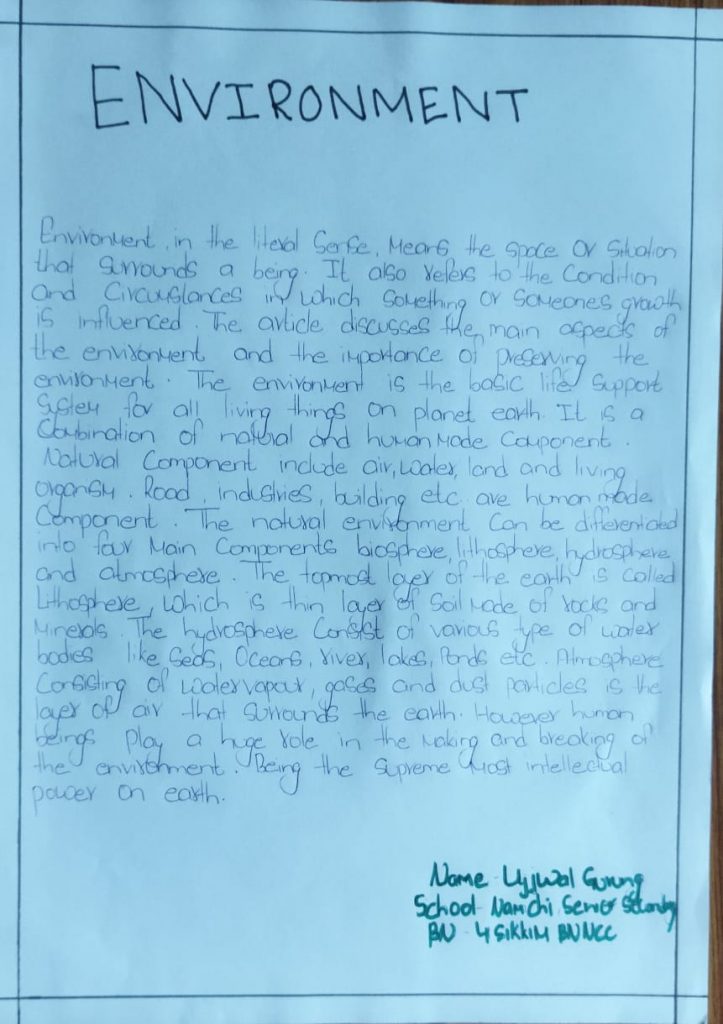 ENVIRONMENT
Environment, in the literal Sense, Means the space Or Situation
that Surrounds a being. It also refers to the Condition
And Circumstances in which Something Or Someones growth
is influenced. The article discusses the main aspects of
the environment and the importance of preserving the
environment. The environment is the basic life Support
System for all living things on planet earth. It is a
Combination of natural and human Made Component.
Natural Component include air, water, land and living
organism. Road, industries, building etc are human made
Component. The natural environment Can be differentiated
into four Main Components biosphere, lithosphere, hydrosphere
and atmosphere. The topmost layer of the earth is called
Lithosphere, which is thin layer of Soil Made of rocks and
Minerals. The hydrosphere Consist of various type of water
bodies like Seas, Oceans, river, lakes, Ponds etc. Atmosphere
Consisting of water vapour, gases and dust particles is the
layer of air that Surrounds the earth. However human
beings Play a huge role in the Making and breaking of
the environment. Being the Supreme Most intellectual
power on earth.
Name - Ujjwal Gurung
School - Namchi Senior Secondary
BN - 4 SIKKIM BN NCC